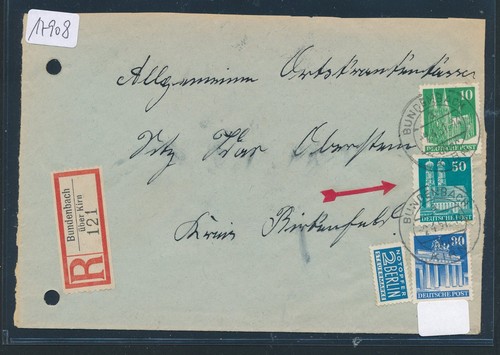 17908
Allgemeine Ortskrankenkasse
Sitz Idar Oberstein
Kreis Birkenfeld.
R
Bundenbach
über Kirn
121
10
DEUTSCHE POST
50
DEUTSCHE POST
30
DEUTSCHE POST
NOTOPFER
2 BERLIN
STEUERMARKE
BUNDENBACH
BUNDENBACH